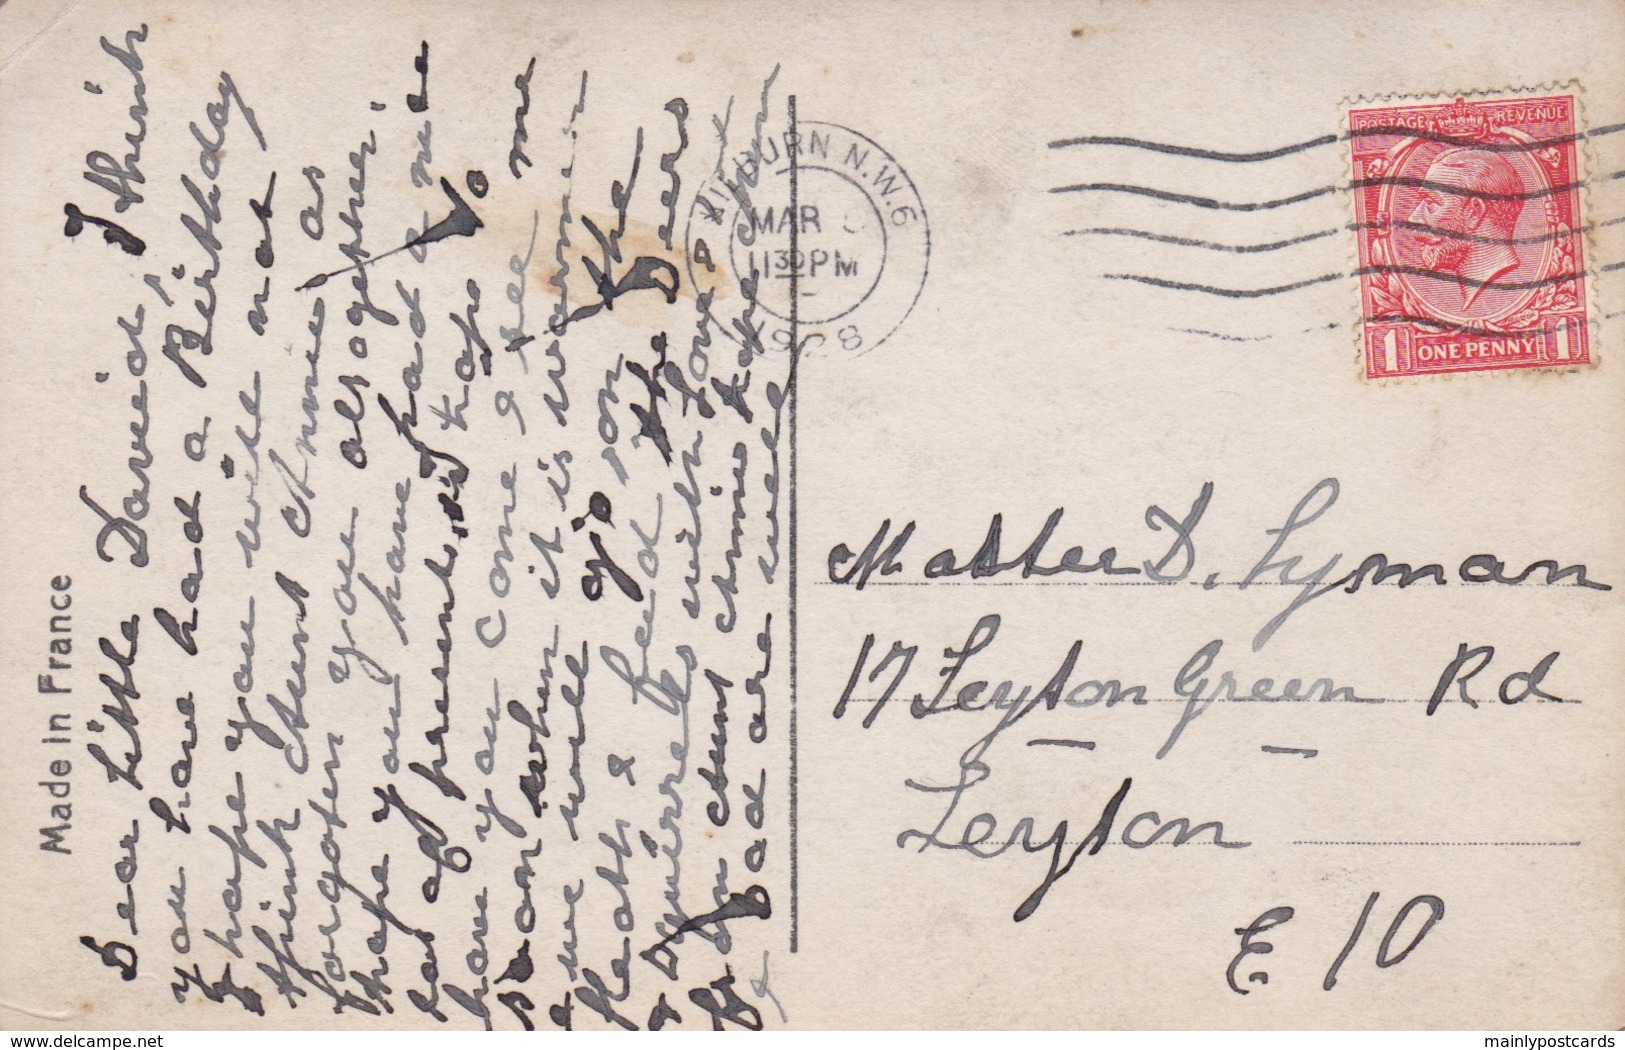 Made in France
Dear Little David, I think
you have had a Birthday
I hope you will not
think Aunt Annie as
forgoten you alsogether.
I hope you have had a nice
lot of presents, I hope to
have you come & see me
soon when it is warmer
& we will go on the
Heath & feed the Deers
& Squirrels with love & x
from Aunt Annie hope Mum
& Dad are well
KILBURN N.W.6
MAR
11 30 PM
1928
POSTAGE REVENUE
1 ONE PENNY 1
Master D. Lyman
17 Leyton Green Rd
Leyton
E. 10
delcampe.net
mainlypostcards